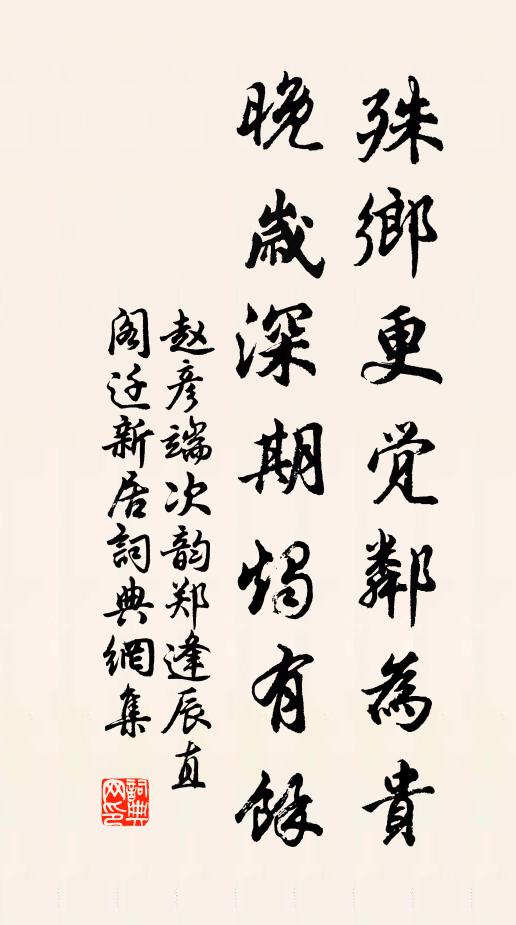 殊鄉更覚鄰為貴
晚歲深期燭有餘
赵彦端次韵郑逢辰直
阁迁新居詞典網集
詞典网印